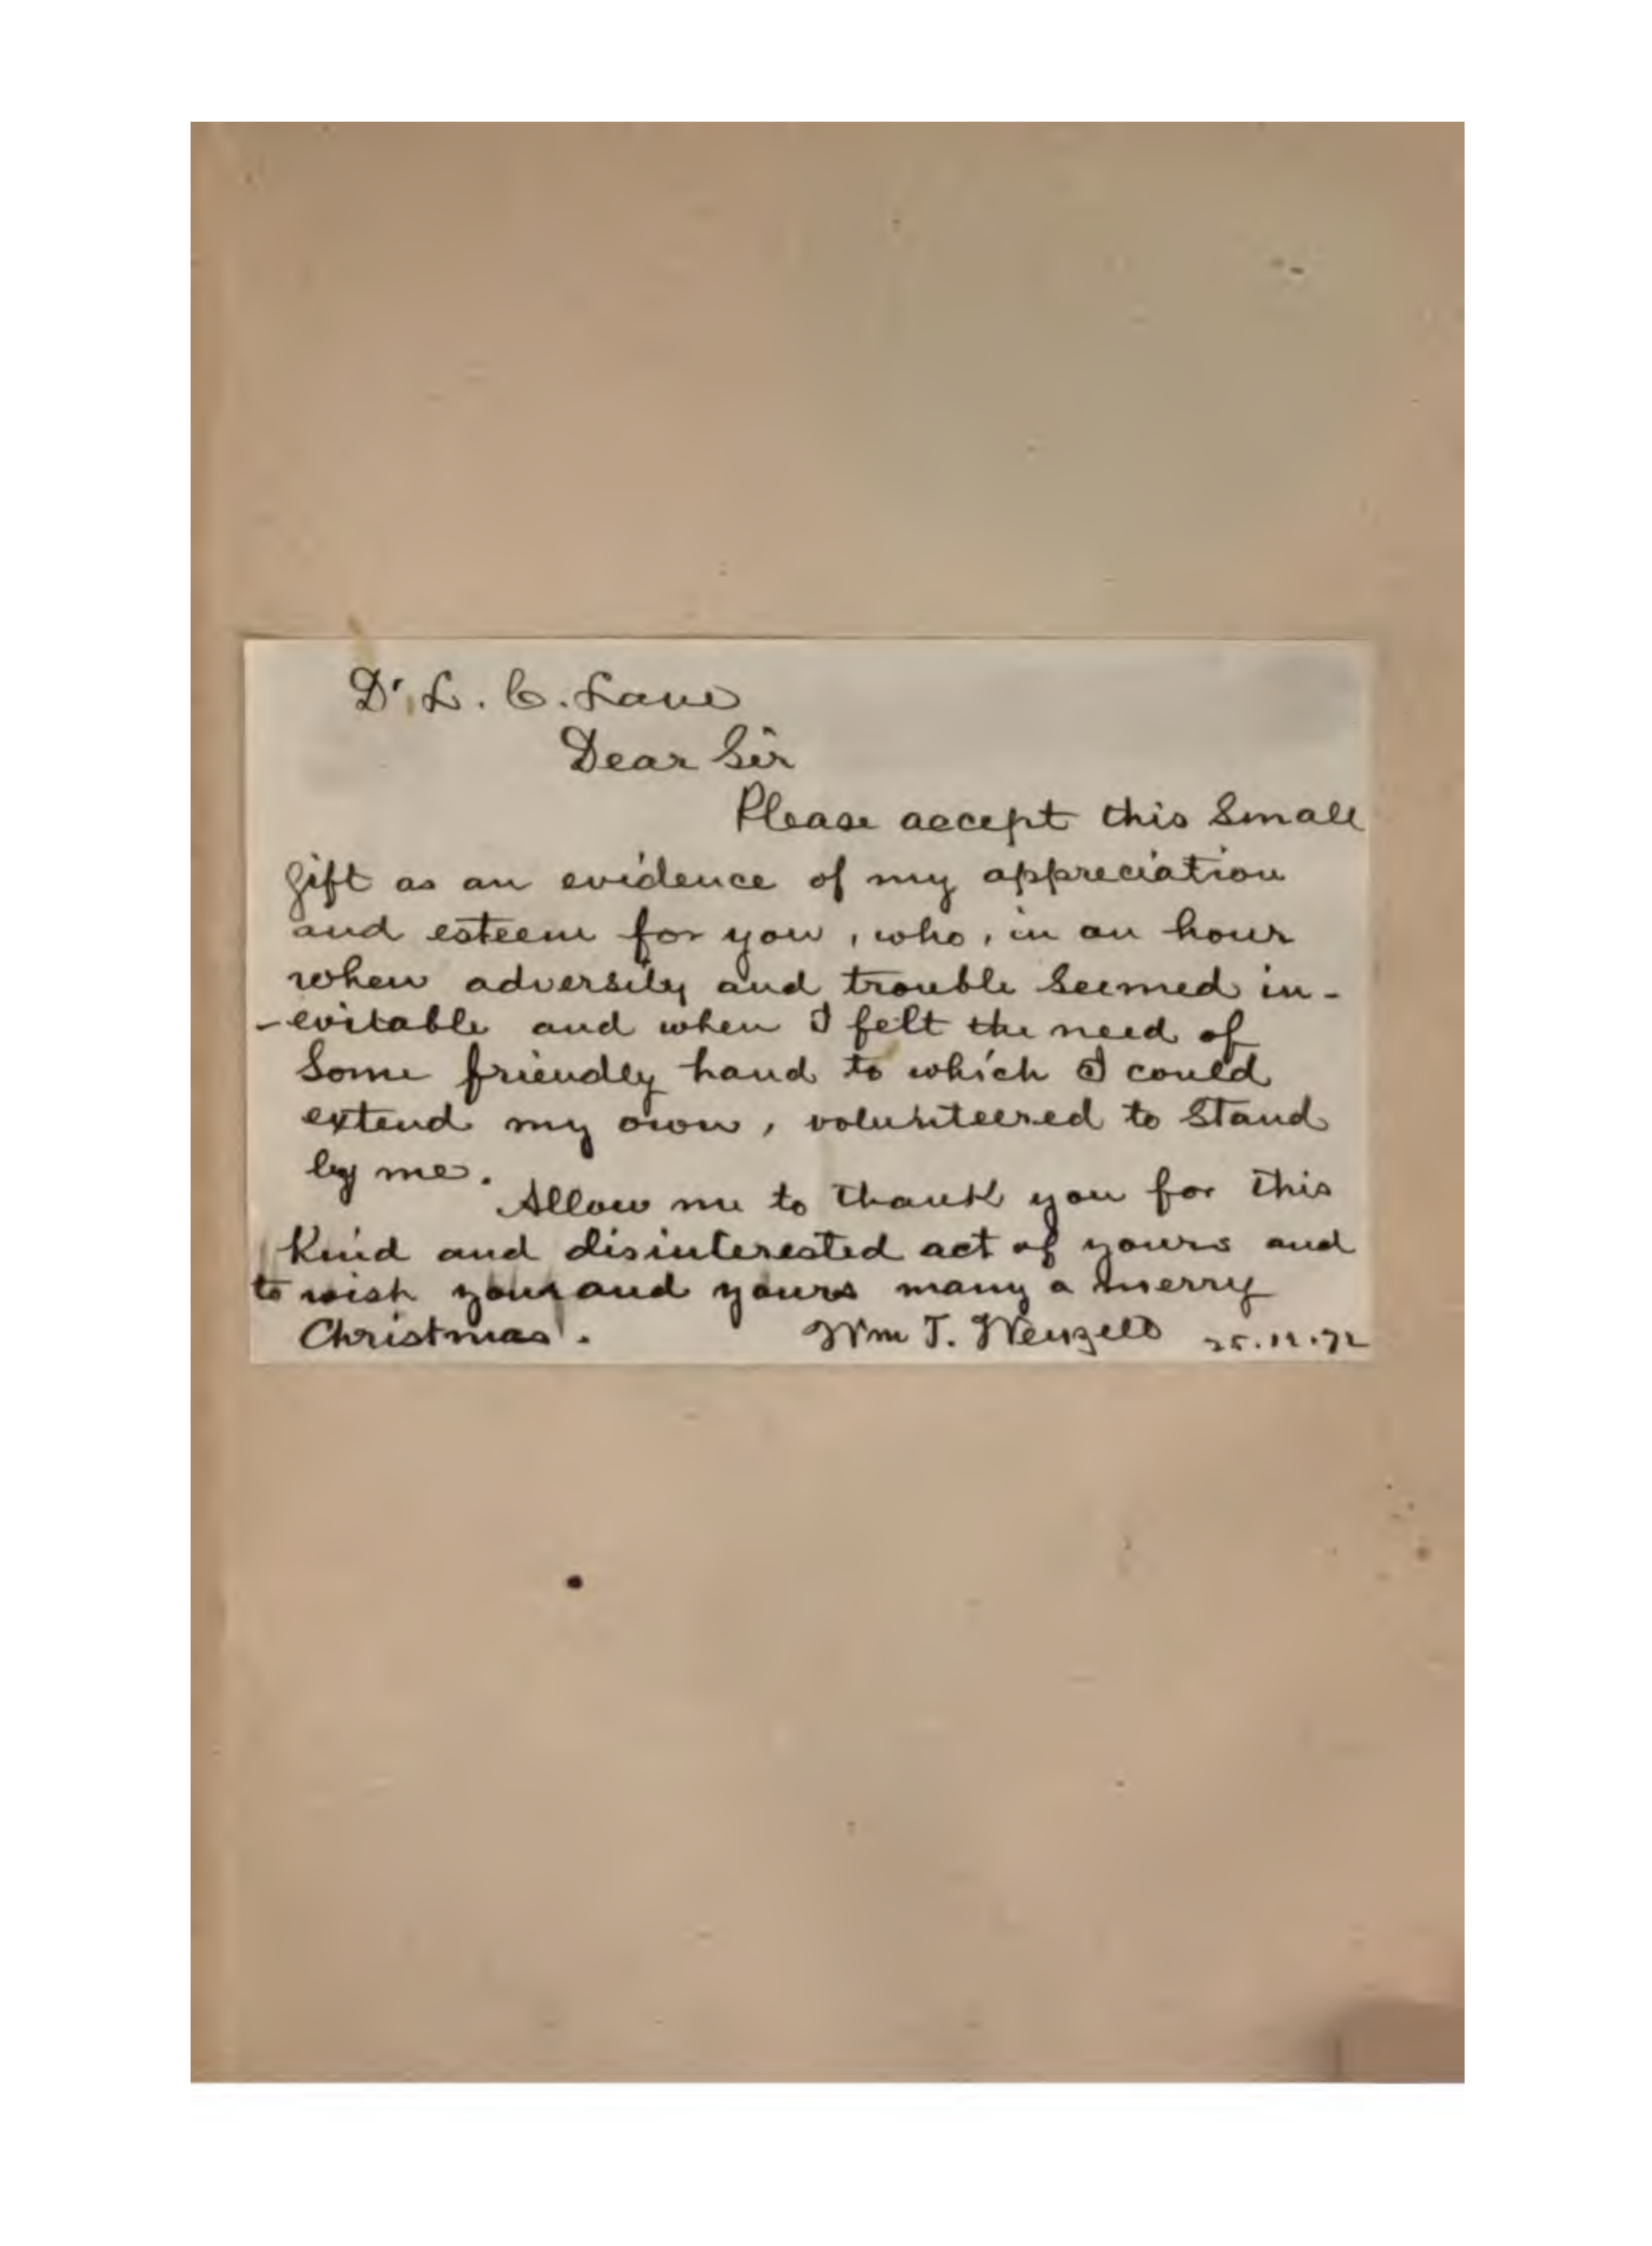 Dr. L. C. Lane
Dear Sir
Please accept this Small
gift as an evidence of my appreciation
and esteem for you, who, in an hour
when adversity and trouble Seemed in-
-evitable and when I felt the need of
Some friendly hand to which I could
extend my own, volunteered to Stand
by me.
Allow me to thank you for this
Kind and disinterested act of yours and
to wish you and yours many a merry
Christmas.
Wm T. Wenzell 25.12.72